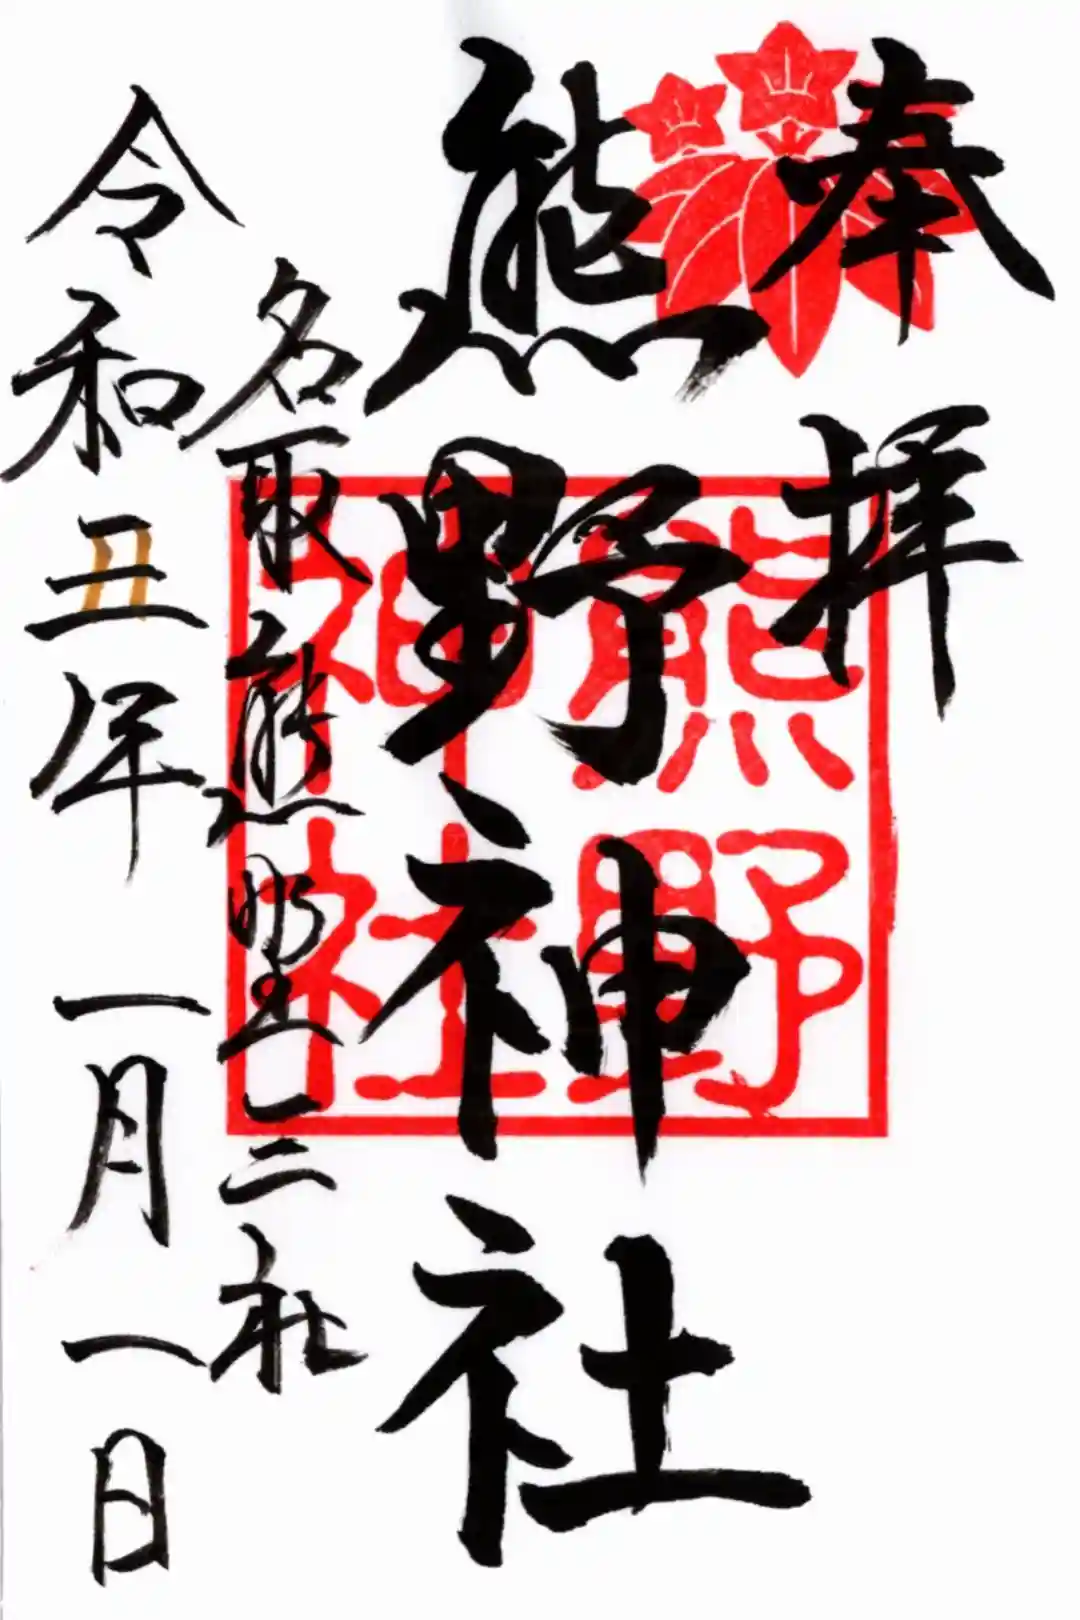 奉拝
熊野神社
熊野
神社
名取熊野三社
令和丑年一月一日